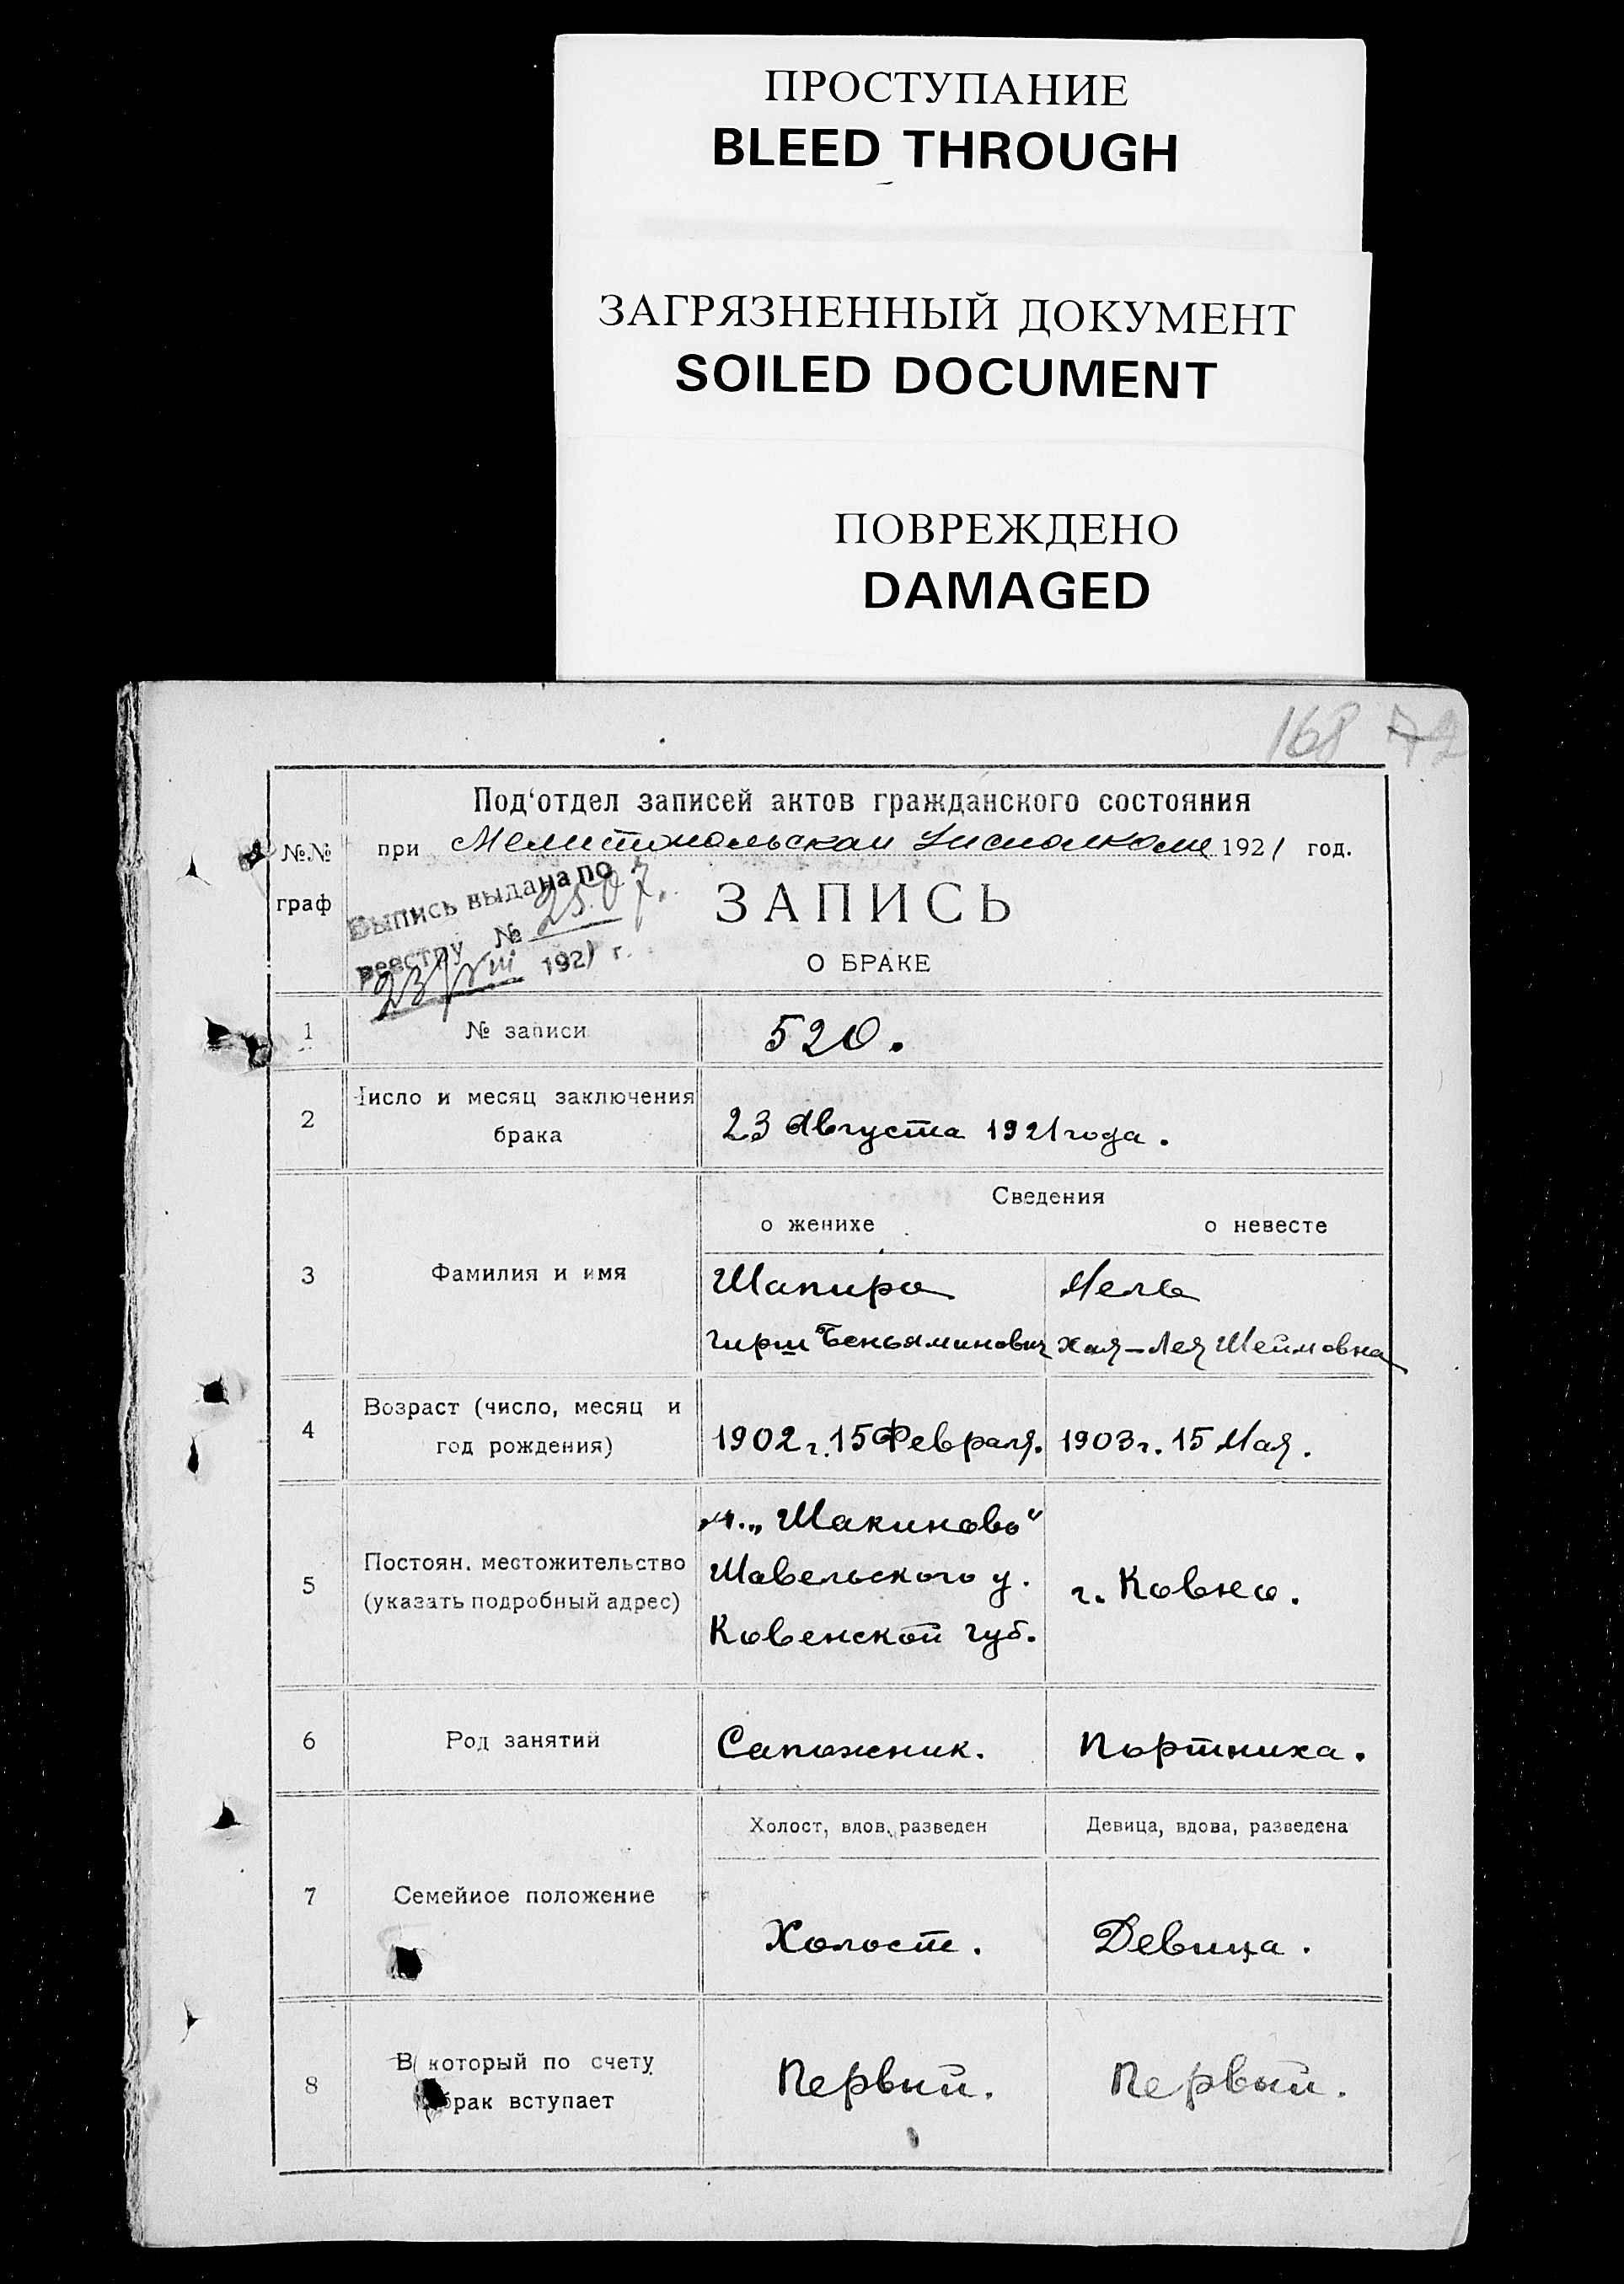 ПРОСТУПАНИЕ
BLEED THROUGH
ЗАГРЯЗНЕННЫЙ ДОКУМЕНТ
SOILED DOCUMENT
ПОВРЕЖДЕНО
DAMAGED
168 72
Под‘отдел записей актов гражданского состояния
№№ граф
при Мелитопольском Уисполкоме 1921 год.
Выпись выдана по
реестру № 2507.
23/VIII 1921 г.
ЗАПИСЬ
О БРАКЕ
1 № записи 520.
2 Число и месяц заключения
брака 23 Августа 1921 года.
Сведения
о женихе о невесте
3 Фамилия и имя Шапиро
Гирш Беньяминович Хая-Лея Шеймовна
4 Возраст (число, месяц и
год рождения) 1902 г. 15 Февраля. 1903 г. 15 Мая.
м. „Шакиново“
5 Постоян. местожительство Шавельского у. г. Ковно.
(указать подробный адрес) Ковенской губ.
6 Род занятий Сапожник. Портниха.
Холост, вдов, разведен Девица, вдова, разведена
7 Семейное положение
Холост. Девица.
8 В который по счету Первый. Первый.
брак вступает